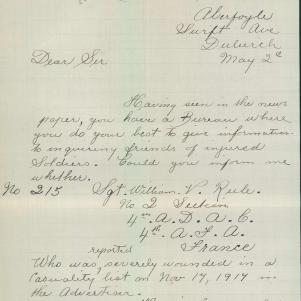 Aberfoyle
Surft Ave
Dulwich
May 2nd
Dear Sir
Having seen in the news
paper, you have a Bureau where
you do your best to give information
to inquiring friends of injured
Soldiers. Could you inform me
whether.
No 215 Sgt. William. V. Rule.
No 2 Section
4th. A. D. A. C.
4th. A. F. A
France
reported
Who was, severely wounded in a
Casuality list on Nov 17, 1917 in
the Advertiser.